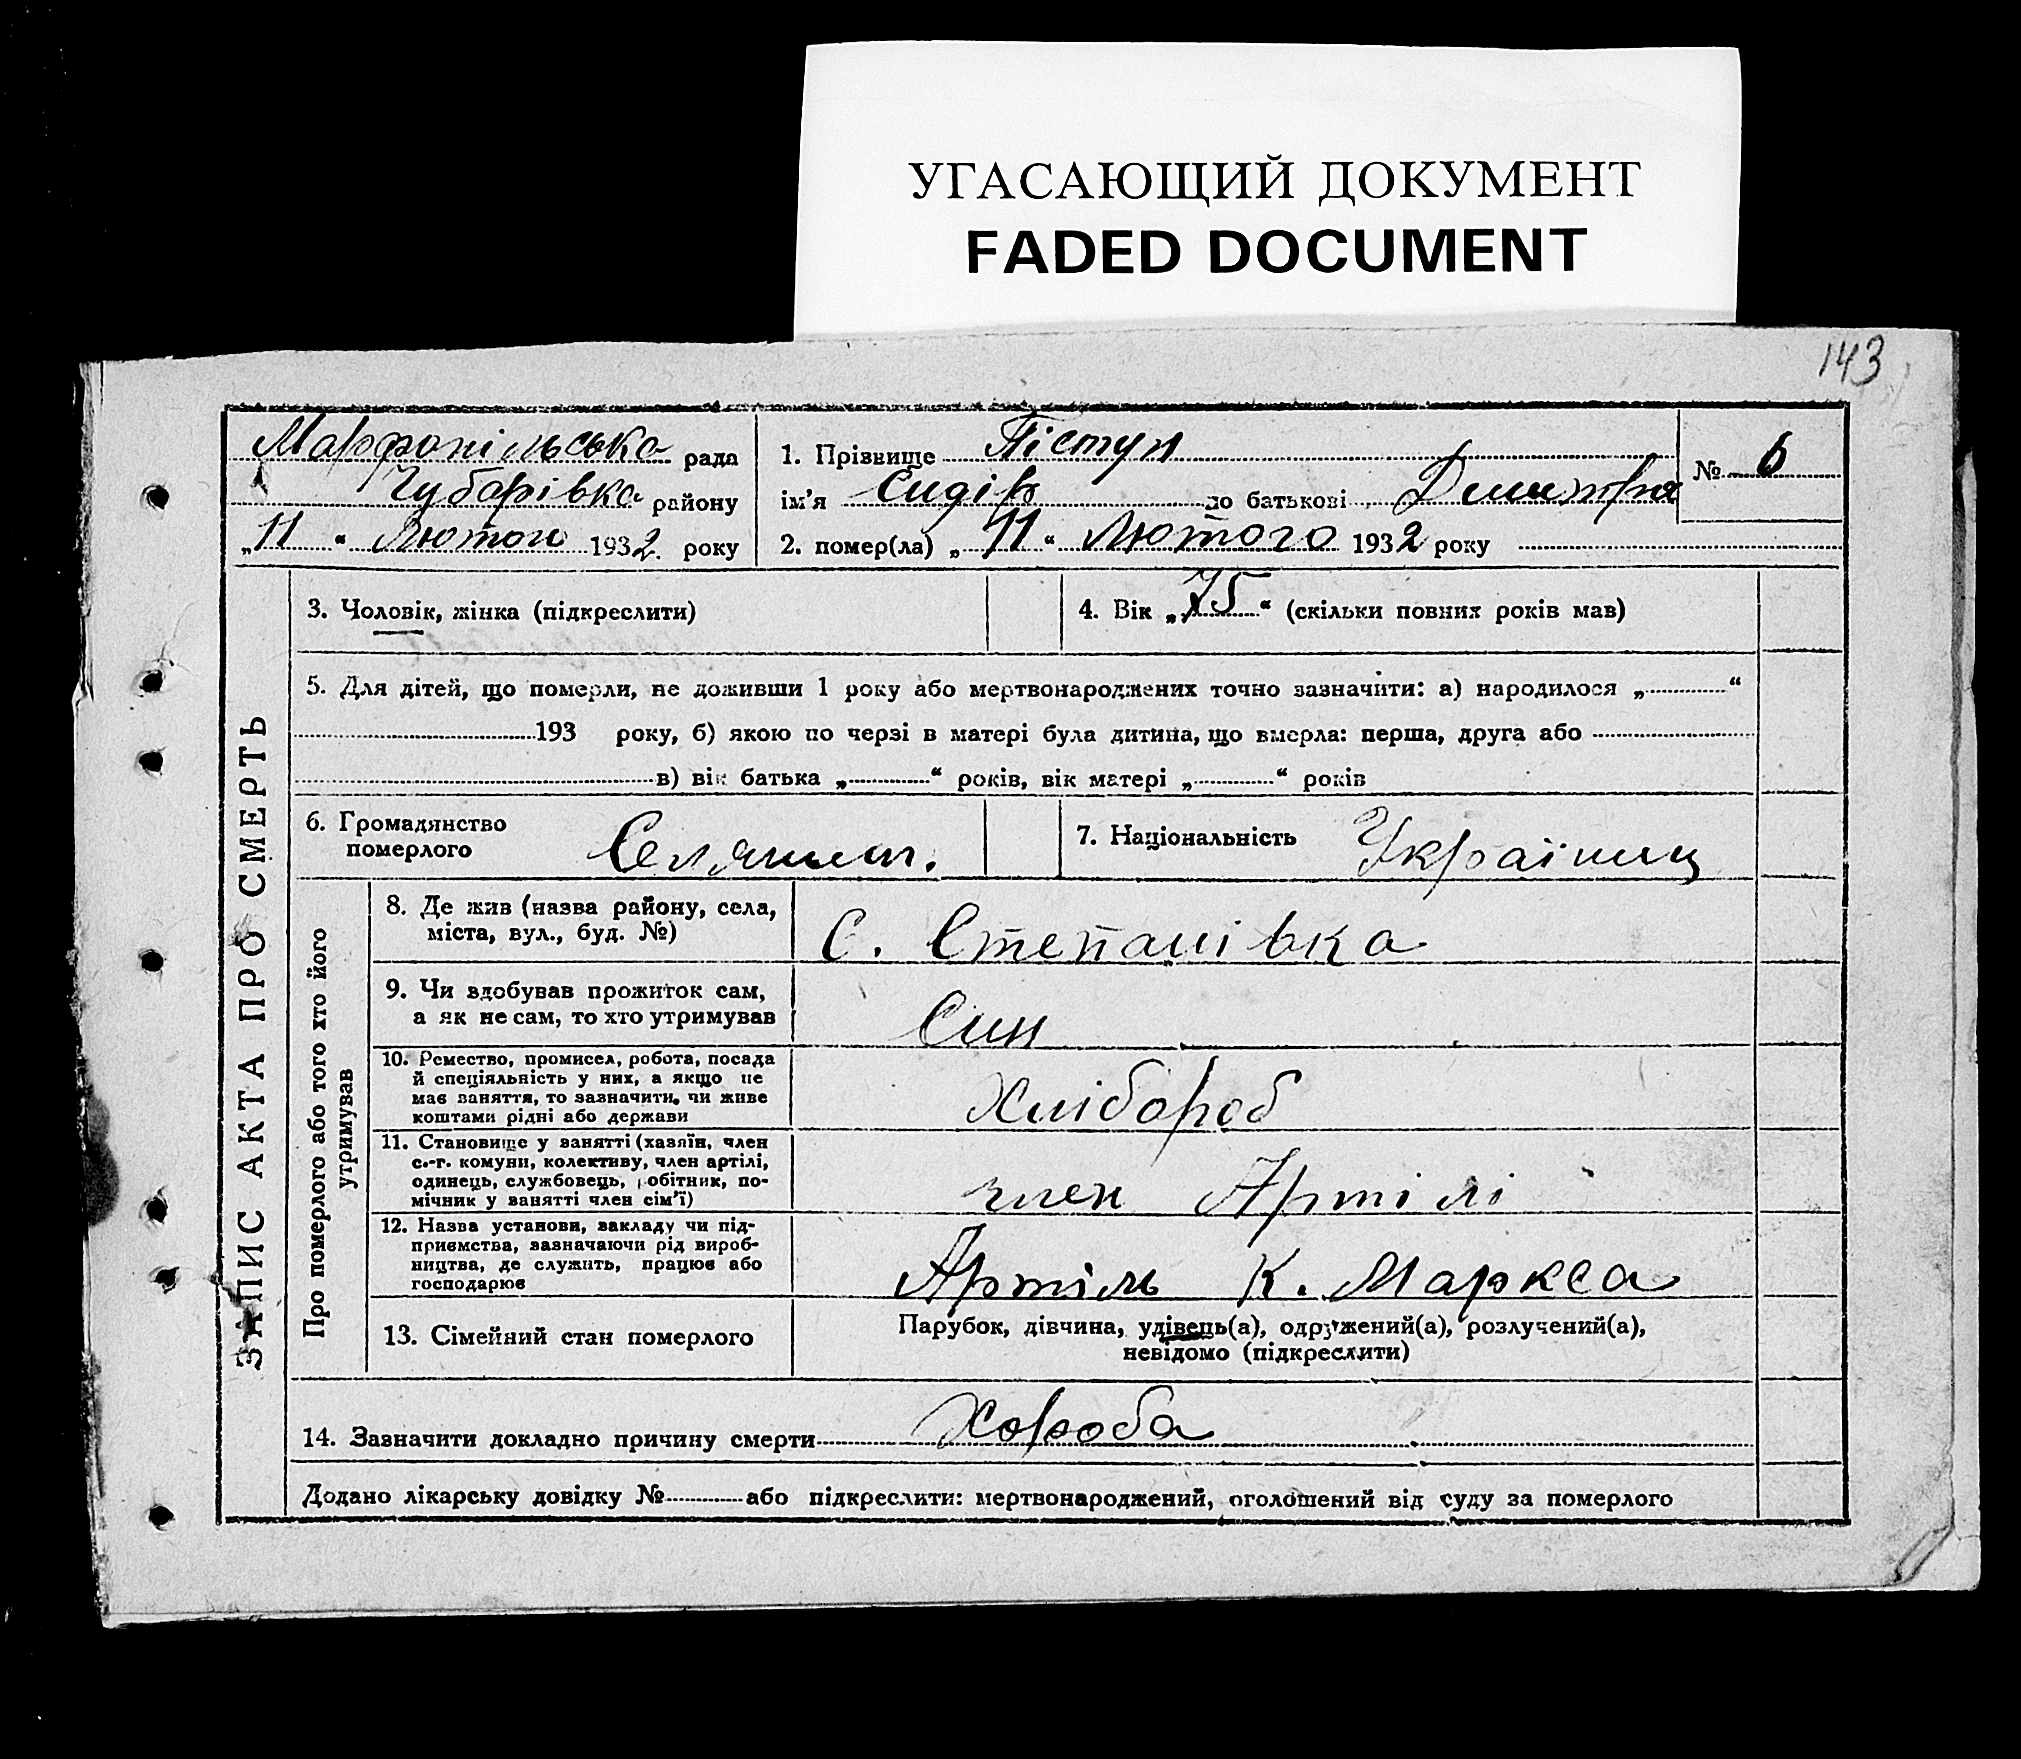 УГАСАЮЩИЙ ДОКУМЕНТ
FADED DOCUMENT
143
ЗАПИС АКТА ПРО СМЕРТЬ
Марфопільська рада
Чубарівка району
„11“ Лютого 1932 року
1. Прізвище Пістун
ім’я Сидір по батькові Дмитра
2. помер(ла) „11“ Лютого 1932 року
№ 6
3. Чоловік, жінка (підкреслити)
4. Вік „75“ (скільки повних років мав)
5. Для дітей, що померли, не доживши 1 року або мертвонароджених точно зазначити: а) народилося „ “
193 року, б) якою по черзі в матері була дитина, що вмерла: перша, друга або
в) вік батька „ “ років, вік матері „ “ років
6. Громадянство
померлого Селянин.
7. Національність Українец
Про померлого або того хто його
утримував
8. Де жив (назва району, села,
міста, вул., буд. №)
С. Степанівка
9. Чи здобував прожиток сам,
а як не сам, то хто утримував
Син
10. Ремество, промисел, робота, посада
й спеціяльність у них, а якщо не
має заняття, то зазначити, чи живе
коштами рідні або держави
Хлібороб
11. Становище у занятті (хазяїн, член
с.-г. комуни, колективу, член артілі,
одинець, службовець, робітник, по-
мічник у занятті член сім’ї)
член Артілі
12. Назва установи, закладу чи під-
приємства, зазначаючи рід вироб-
ництва, де служить, працює або
господарює
Артіль К. Маркса
13. Сімейний стан померлого
Парубок, дівчина, удівець(а), одружений(а), розлучений(а),
невідомо (підкреслити)
14. Зазначити докладно причину смерти Хороба
Додано лікарську довідку № або підкреслити: мертвонароджений, оголошений від суду за померлого